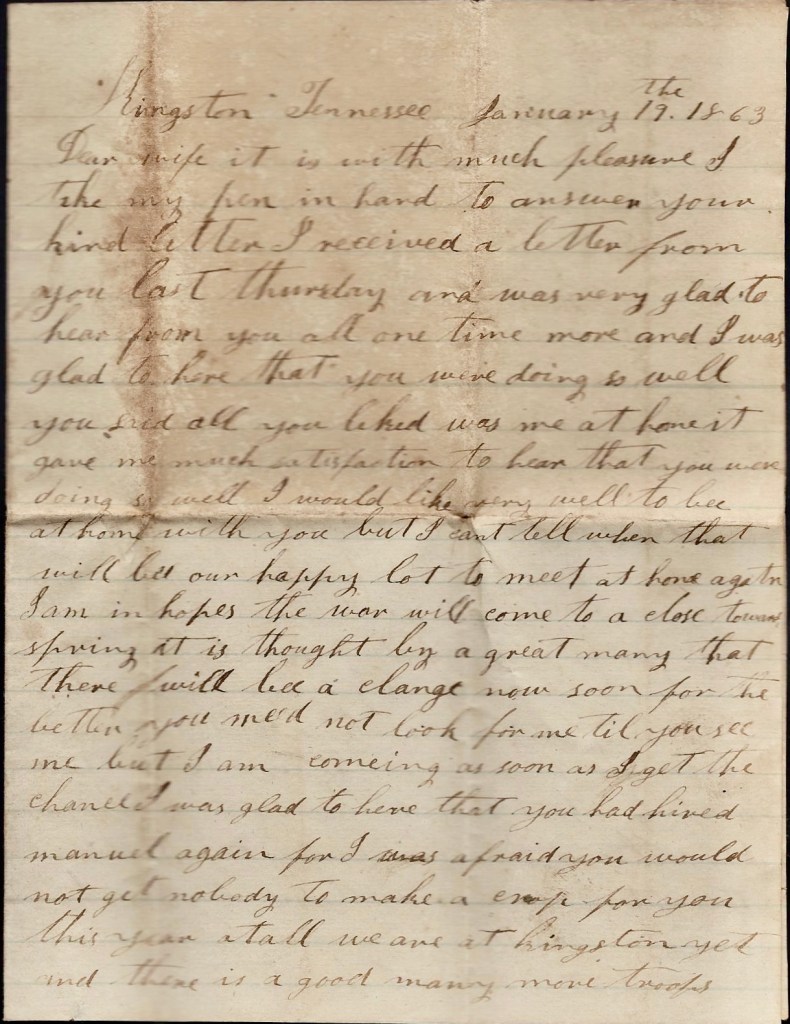 Kingston Tennessee January the 19. 1863
Dear wife it is with much pleasure I
take my pen in hand to answer your
kind letter I received a letter from
you last thursday and was very glad to
hear from you all one time more and I was
glad to here that you were doing so well
you said all you liked was me at home it
gave me much satisfaction to hear that you were
doing so well I would like very well to bee
at home with you but I cant tell when that
will bee our happy lot to meet at home again
I am in hopes the war will come to a close toward
spring it is thought by a great many that
there will bee a change now soon for the
better you need not look for me til you see
me but I am comeing as soon as I get the
chance I was glad to here that you had hired
manuel again for I was afraid you would
not get nobody to make a crop for you
this year atall we are at kingston yet
and there is a good many more troops